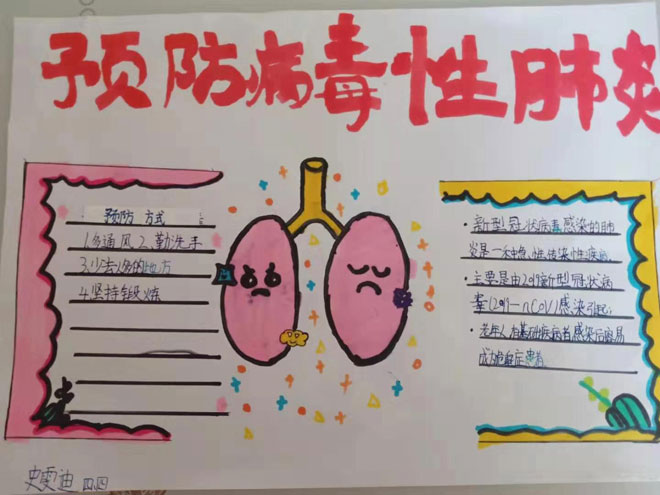 预防病毒性肺炎
预防 方式
1.多通风 2.勤洗手
3.少去人多的地方
4.坚持锻炼
·新型冠状病毒感染的肺
炎是一种急性传染性疾病。
·主要是由2019新型冠状病
毒(2019-nCoV)感染引起
·老年人有基础疾病者感染后容易
成为危重症患者
史雯迪 四.四